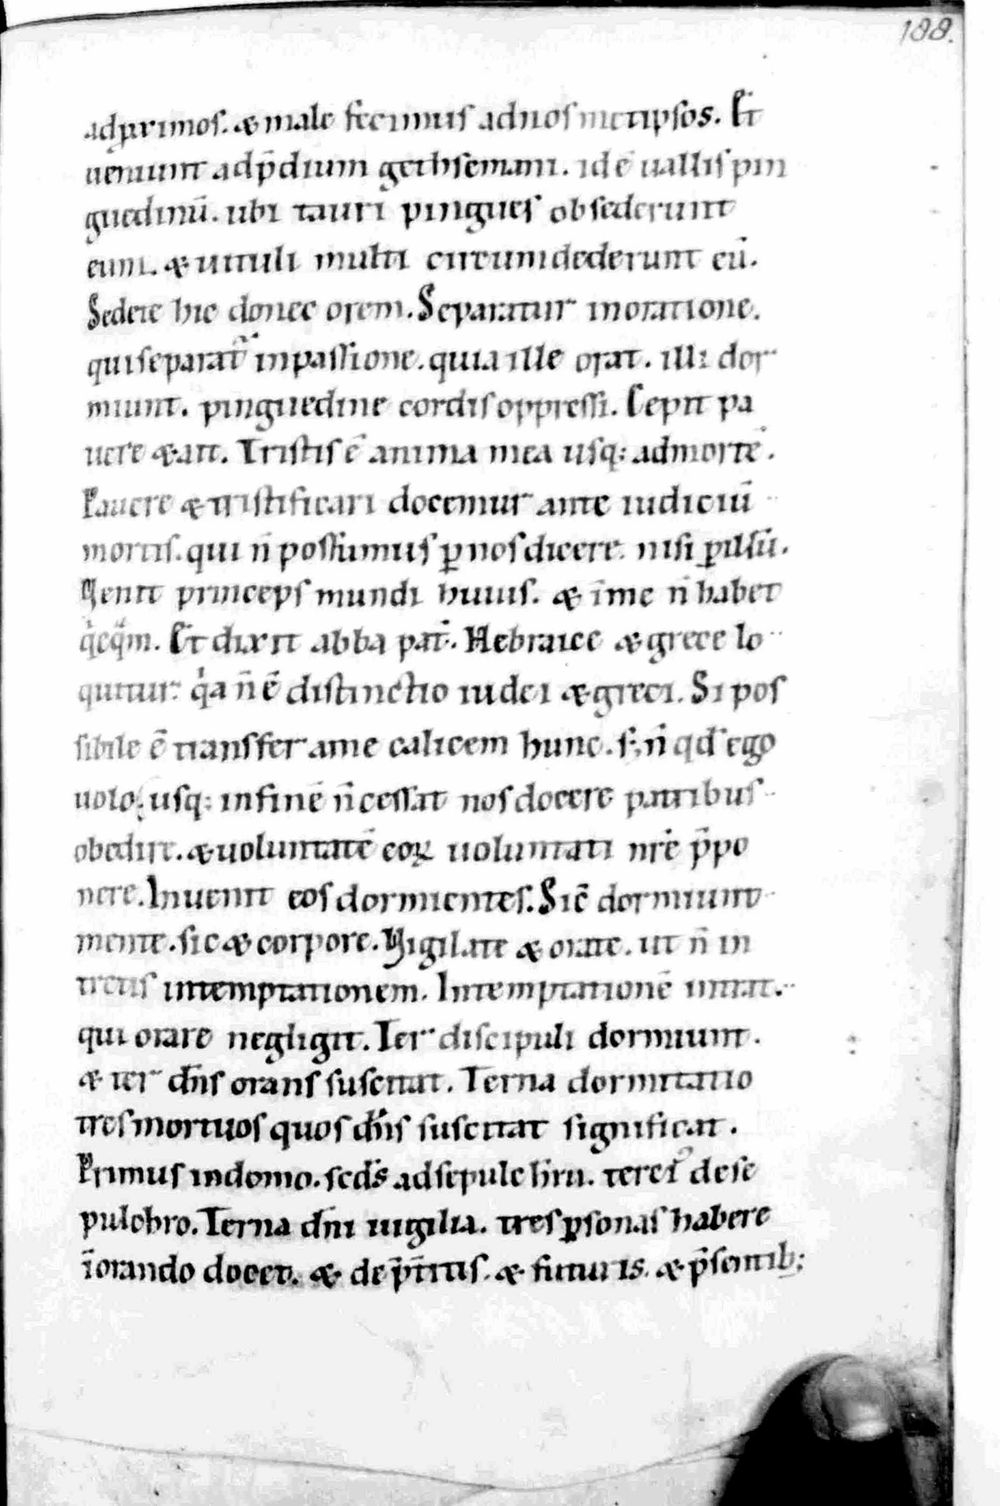 188.
adprimos. & male fecimus adnosmetipsos. Et
ueniunt adp̄dium gethsemani. id ē uallis pin
guedinū. ubi tauri pingues obsederunt
eum. & uituli multi circumdederunt eū.
Sedete hic donec orem. Separatur inoratione.
qui separatᷓ inpassione. quia ille orat. illi dor
miunt. pinguedine cordis oppressi. Cepit pa
uere & ait. Tristis ē anima mea usq; admortē.
Pauere & tristificari docemur ante iudiciū
mortis. qui n̄ possumus ꝑ nos dicere. nisi ꝑ illū.
Venit princeps mundi huius. & ī me n̄ habet
q̇cq̇m. Et dixit abba pat̄. Hebraice & grece lo
quitur. q̇a n̄ ē distinctio iudei & greci. Si pos
sibile ē transfer ame calicem hunc. s; n̄ qd̄ ego
uolo. usq; infinē n̄ cessat nos docere patribus
obedire. & uoluntatē eoꝝ uoluntati nr̄e p̄po
nere. Inuenit eos dormientes. Sic̄ dormiunt
mente. sic & corpore. Vigilate & orate. ut n̄ in
tretis intemptationem. Intemptationē intrat.
qui orare negligit. Ter discipuli dormiunt.
& ter dn̄s orans suscitat. Terna dormitatio
tres mortuos quos dn̄s suscitat significat.
Primus indomo. scd̄s adsepulchrū. terci᷒ dese
pulchro. Terna dn̄i uigilia. tres ꝑsonas habere
ī orando docet. & de p̄t̄itis. & futuris. & p̄sentib;